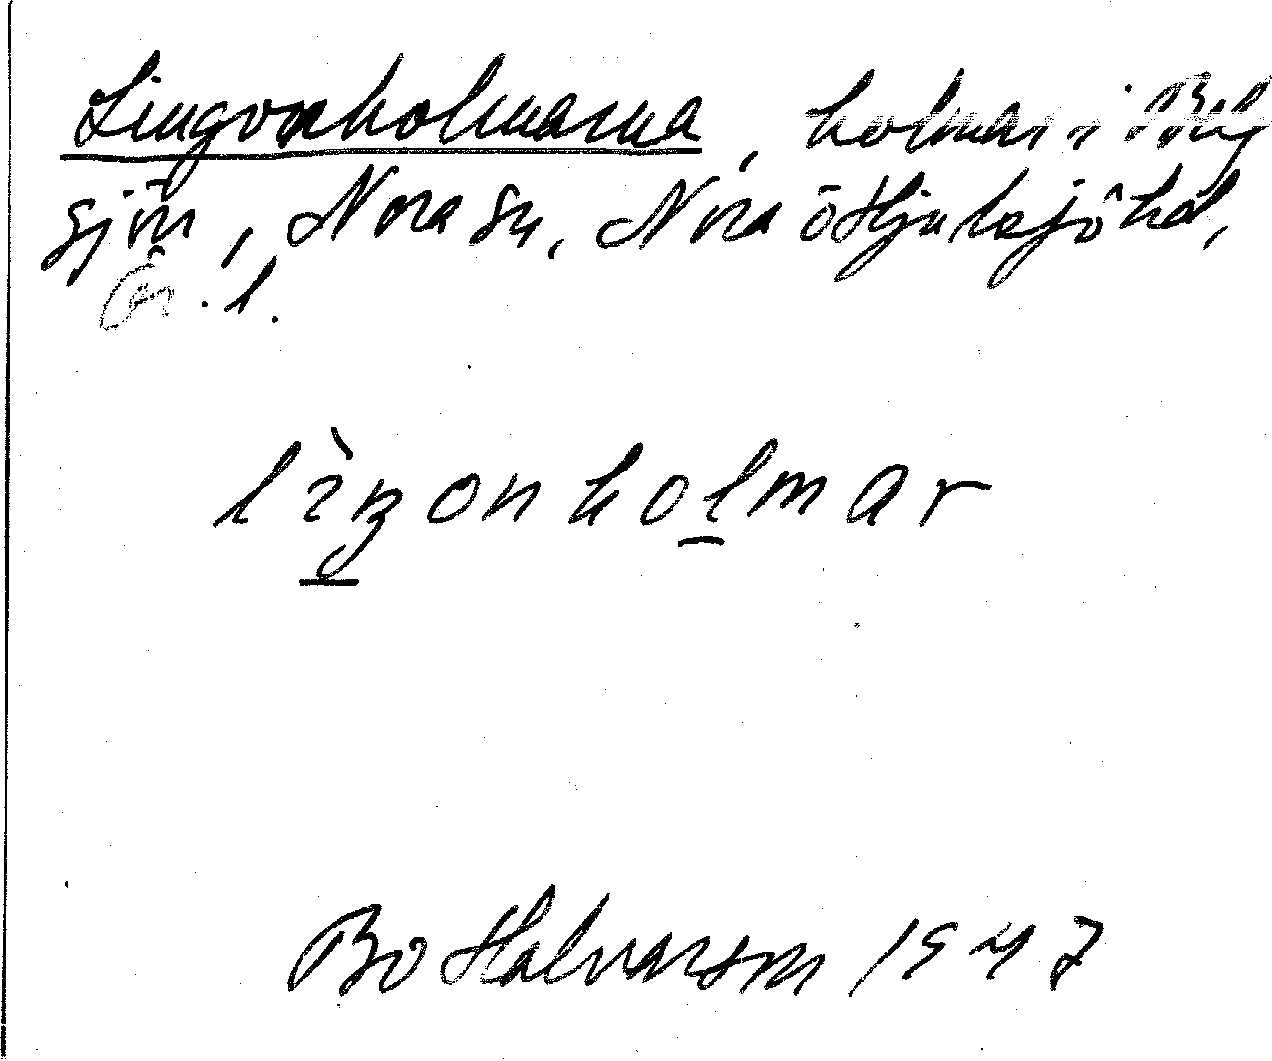 Lingonholmarna, holmar i Bälg
sjön, Nora sn, Nora o Hjulsjö hd,
Ör. l.
lìŋonholmar
Bo Halvarson 1947